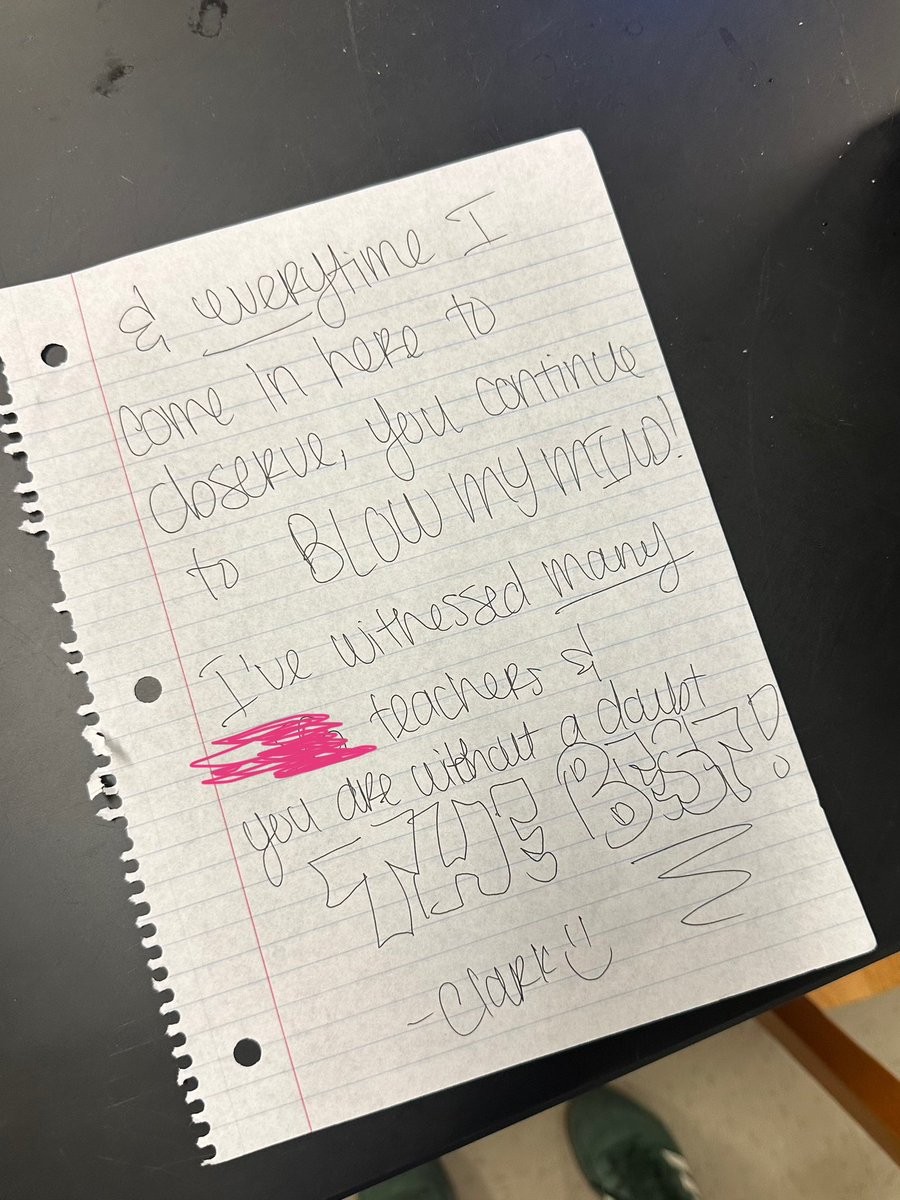 & everytime I
come in here to
observe, you continue
to BLOW MY MIND!
I've witnessed many
teachers &
you are without a doubt
THE BEST!
-Clark